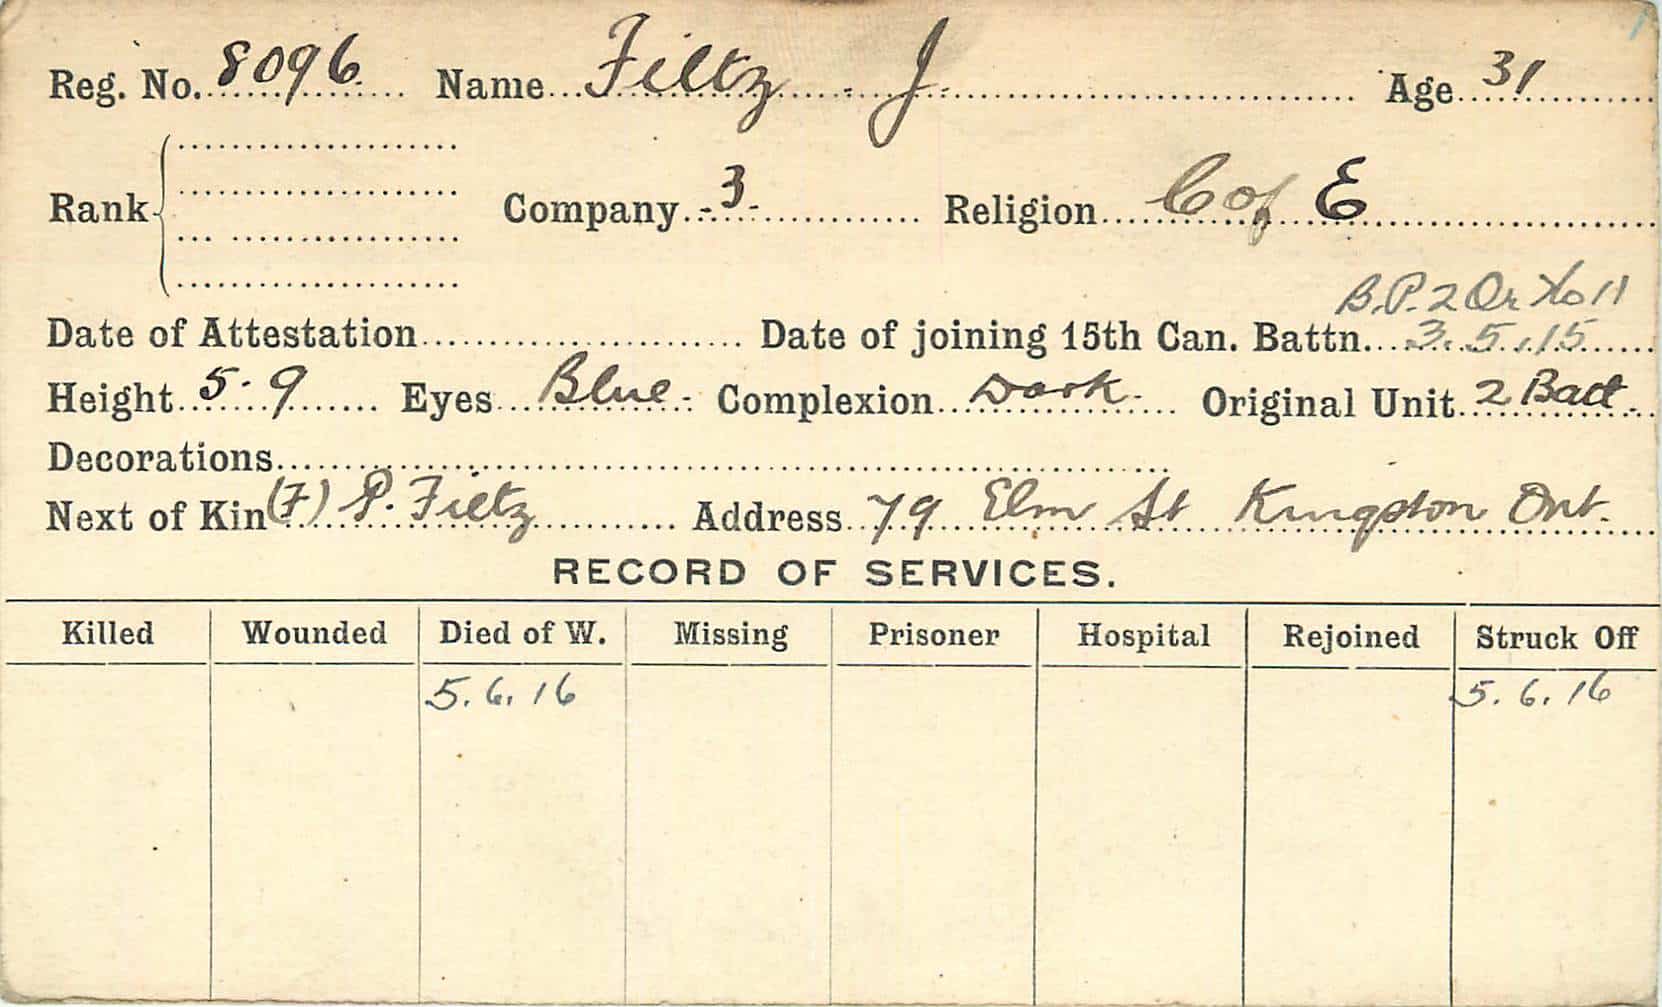 Reg. No. 8096 Name Filtz J. Age 31
Rank Company -3- Religion C of E
B.P. 2 Or No 11
Date of Attestation Date of joining 15th Can. Battn. 3.5.15
Height 5.9 Eyes Blue. Complexion Dark. Original Unit 2 Batt.
Decorations
Next of Kin (F) P. Filtz Address 79 Elm St Kingston Ont.
RECORD OF SERVICES.
Killed Wounded Died of W. Missing Prisoner Hospital Rejoined Struck Off
5.6.16 5.6.16